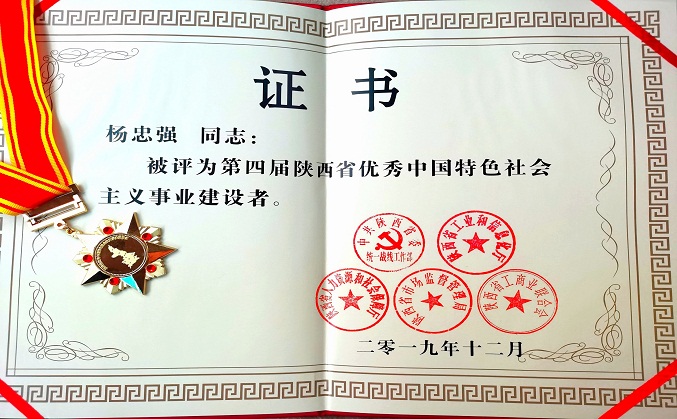 证书
杨忠强 同志：
被评为第四届陕西省优秀中国特色社会
主义事业建设者。
中共陕西省委
统一战线工作部
陕西省工业和信息化厅
陕西省人力资源和社会保障厅
陕西省市场监督管理局
陕西省工商业联合会
二零一九年十二月